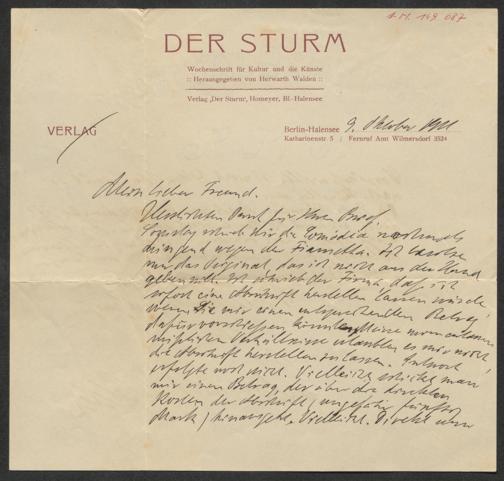 1 M. 149 087
DER STURM
Wochenschrift für Kultur und die Künste
:: Herausgegeben von Herwarth Walden ::
Verlag „Der Sturm“, Homeyer, Bl.-Halensee
VERLAG
Berlin-Halensee 9. Oktober 1911
Katharinenstr 5 / Fernruf Amt Wilmersdorf 3524
Mein lieber Freund.
Herzlichsten Dank für Ihren Brief.
schrieb mir die Comödia nochmals
dringend wegen der Fiametta. Ich besitze
nur das Original, das ich nicht aus der Hand
geben will. Ich schrieb der Firma, dass ich
sofort eine Abschrift herstellen lassen würde,
wenn Sie mir einen entsprechenden Betrag
dafür vorschiessen könnten. Meine momentanen
Verhältnisse erlaubten es mir nicht,
die Abschrift herstellen zu lassen. Antwort
erfolgte noch nicht. Vielleicht schickt man
mir einen Betrag, der über die direkten
Kosten der Abschrift (ungefähr fünfzig
Mark) hinausgeht. Vielleicht. Direkt